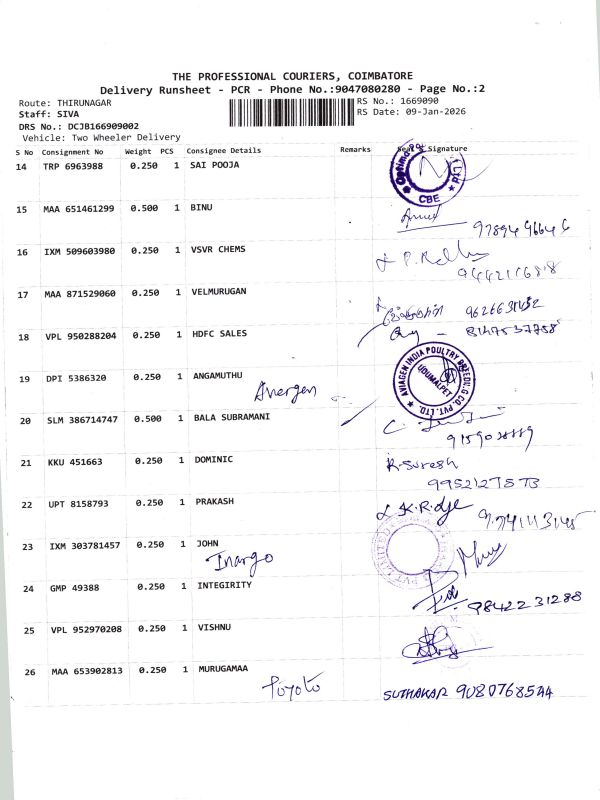 THE PROFESSIONAL COURIERS, COIMBATORE
Delivery Runsheet - PCR - Phone No.:9047080280 - Page No.:2
Route: THIRUNAGAR
RS No.: 1669090
Staff: SIVA
RS Date: 09-Jan-2026
DRS No.: DCJB166909002
Vehicle: Two Wheeler Delivery
S No Consignment No Weight PCS Consignee Details Remarks Signature
14 TRP 6963988 0.250 1 SAI POOJA
CBE
15 MAA 651461299 0.500 1 BINU
16 IXM 509603980 0.250 1 VSVR CHEMS
17 MAA 871529060 0.250 1 VELMURUGAN
18 VPL 950288204 0.250 1 HDFC SALES
8147537758
19 DPI 5386320 0.250 1 ANGAMUTHU
AVIAGEN INDIA POULTRY BREEDING CO. PVT. LTD.
UDUMALPET
20 SLM 386714747 0.500 1 BALA SUBRAMANI
21 KKU 451663 0.250 1 DOMINIC
R. Suresh
22 UPT 8158793 0.250 1 PRAKASH
23 IXM 303781457 0.250 1 JOHN
24 GMP 49388 0.250 1 INTEGIRITY
9842231288
25 VPL 952970208 0.250 1 VISHNU
26 MAA 653902813 0.250 1 MURUGAMAA
Toyoto
SUTHAKAR 9080768544